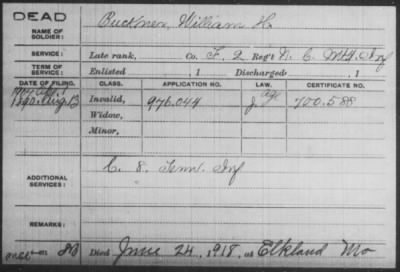 DEAD
NAME OF SOLDIER:
Buckner, William H.
SERVICE:
Late rank, Co. F, 2 Reg't N. C. Mtd. Inf
TERM OF SERVICE:
Enlisted , 1 Discharged , 1
DATE OF FILING. CLASS. APPLICATION NO. LAW. CERTIFICATE NO.
1890. Aug. 13 Invalid, 976.044 720.588
Widow,
Minor,
ADDITIONAL SERVICES:
C. 8. Tenn. Inf
REMARKS:
Died June 24, 1918, at Elkland Mo